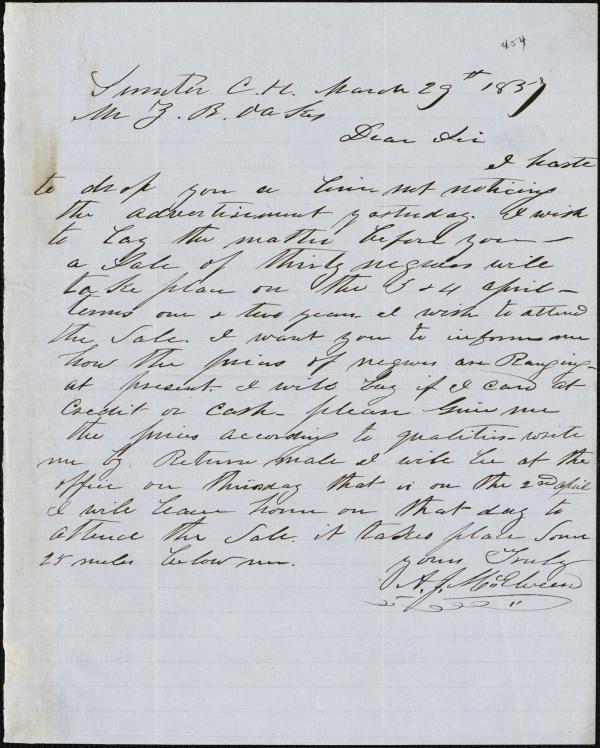 454
Sumter C. H. March 29th 1857
Mr Z. B. Oakes
Dear Sir
I haste
to drop you a line not noticing
the advertisement yasterday. I wish
to Lay the matter before you —
a Sale of thirty negroes will
take place on the 3 & 4 april —
terms one & two years I wish to attend
the Sale. I want you to inform me
how the prices of negroes are Ranging —
at present. I will buy if I can at
Credit or Cash — please Give me
the prices according to qualities — write
me by Return male I will be at the
office on thursday that is on the 2nd april
I will leave home on that day to
attend the Sale. it takes place Some
25 miles below me. yours Truly
A. J. McElveen